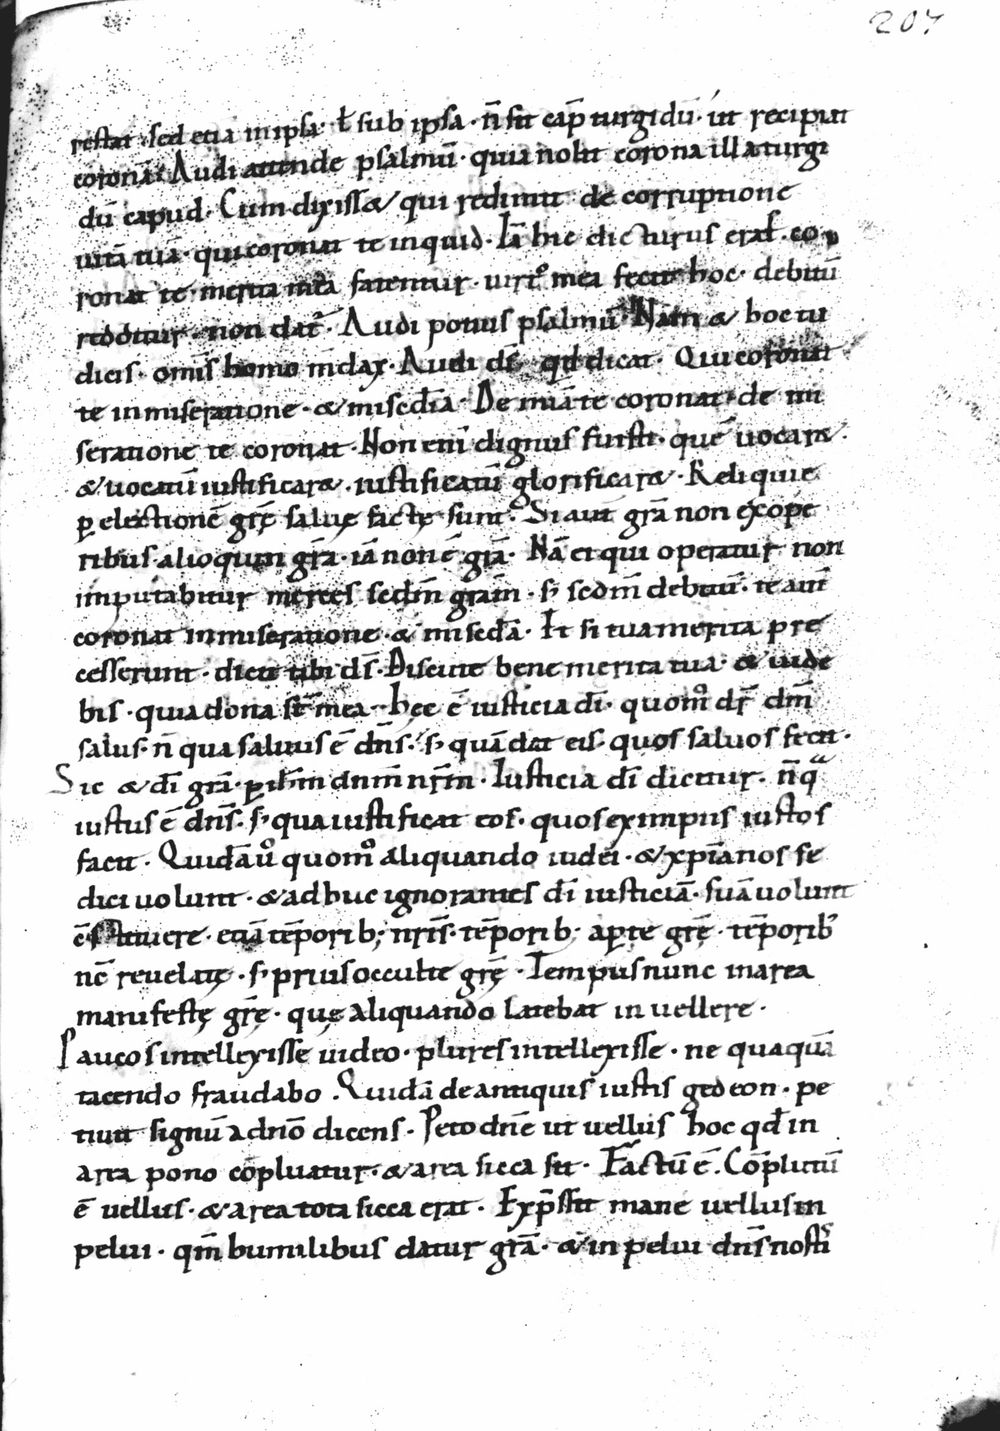 207
restat · sed etiā in ipsa · ł sub ipsa · n̄ sit cap̄ turgidū · ut recipiat
coronā · Audi attende psalmū · quia nolit corona illa turgi
dū capud · Cum dixiss& qui redimit de corruptione
uitā tuā · qui coronat te inquid · Iā hic dicturus eras · co
ronat te · merita mea fatentur · uirt᷒ mea fecit hoc · debitū
redditur · non dat᷒ · Audi potius psalmū · Nam & hoc tu
dicis · omīs homo mdax · Audi ds̄ qd̄ dicat · Qui coronat
te in miseratione · & misc̄dia · De mīa te coronat · de mi
seratione te coronat · Non enī dignus fuisti · quē uocar& ·
& uocatū iustificar& · iustificatū glorificar& · Reliquie
ꝑ electionē grę̄ saluę factę sunt · Si aut̄ grā non ex ope
ribus · alioquin grā · iā non ē grā · Nā ei qui operatur non
imputabitur merces scdm̄ gram̄ · s; scdm̄ debitū · te aut̄
coronat in miseratione · & misc̄dā · Et si tua merita pre
cesserunt · dicit tibi ds̄ · Discute bene merita tua · & uide
bis · quia dona st̄ mea · hec ē iusticia dī · quom̊ dr̄ dn̄i
salus · n̄ qua saluus ē dn̄s · s; quā dat eis · quos saluos fecit ·
Sic & dī grā · ꝑ ihm̄ dnm̄ nrm̄ · Iusticia dī dicitur · n̄ qᵃ
iustus ē dn̄s · s; qua iustificat eos · quos ex impiis iustos
facit · Quidā ů quom̊ aliquando iudei · & xp̄ianos se
dici uolunt · & adhuc ignorantes dī iusticiā · suā uolunt
c̄stituere · etiā tēporib; nrīs · tēporib; aꝑte grę̄ · tēporib᷒
nc̄ reuelatę · s; prius occulte grę̄ · Tempus nunc in area
manifestę grę̄ · quę aliquando latebat in uellere ·
Paucos intellexisse uideo · plures intellexisse · ne quaquā
tacendo fraudabo · Quidā de antiquis iustis gedeon · pe
tiuit signū a dn̄o dicens · Peto dn̄e ut uellus hoc qd̄ in
area pono cōpluatur · & area sicca sit · Factū ē · Cōplutū
ē uellus · & area tota sicca erat · Exp̄ssit mane uellus in
pelui · qm̄ humilibus datur grā · & in pelui dn̄s nost̄